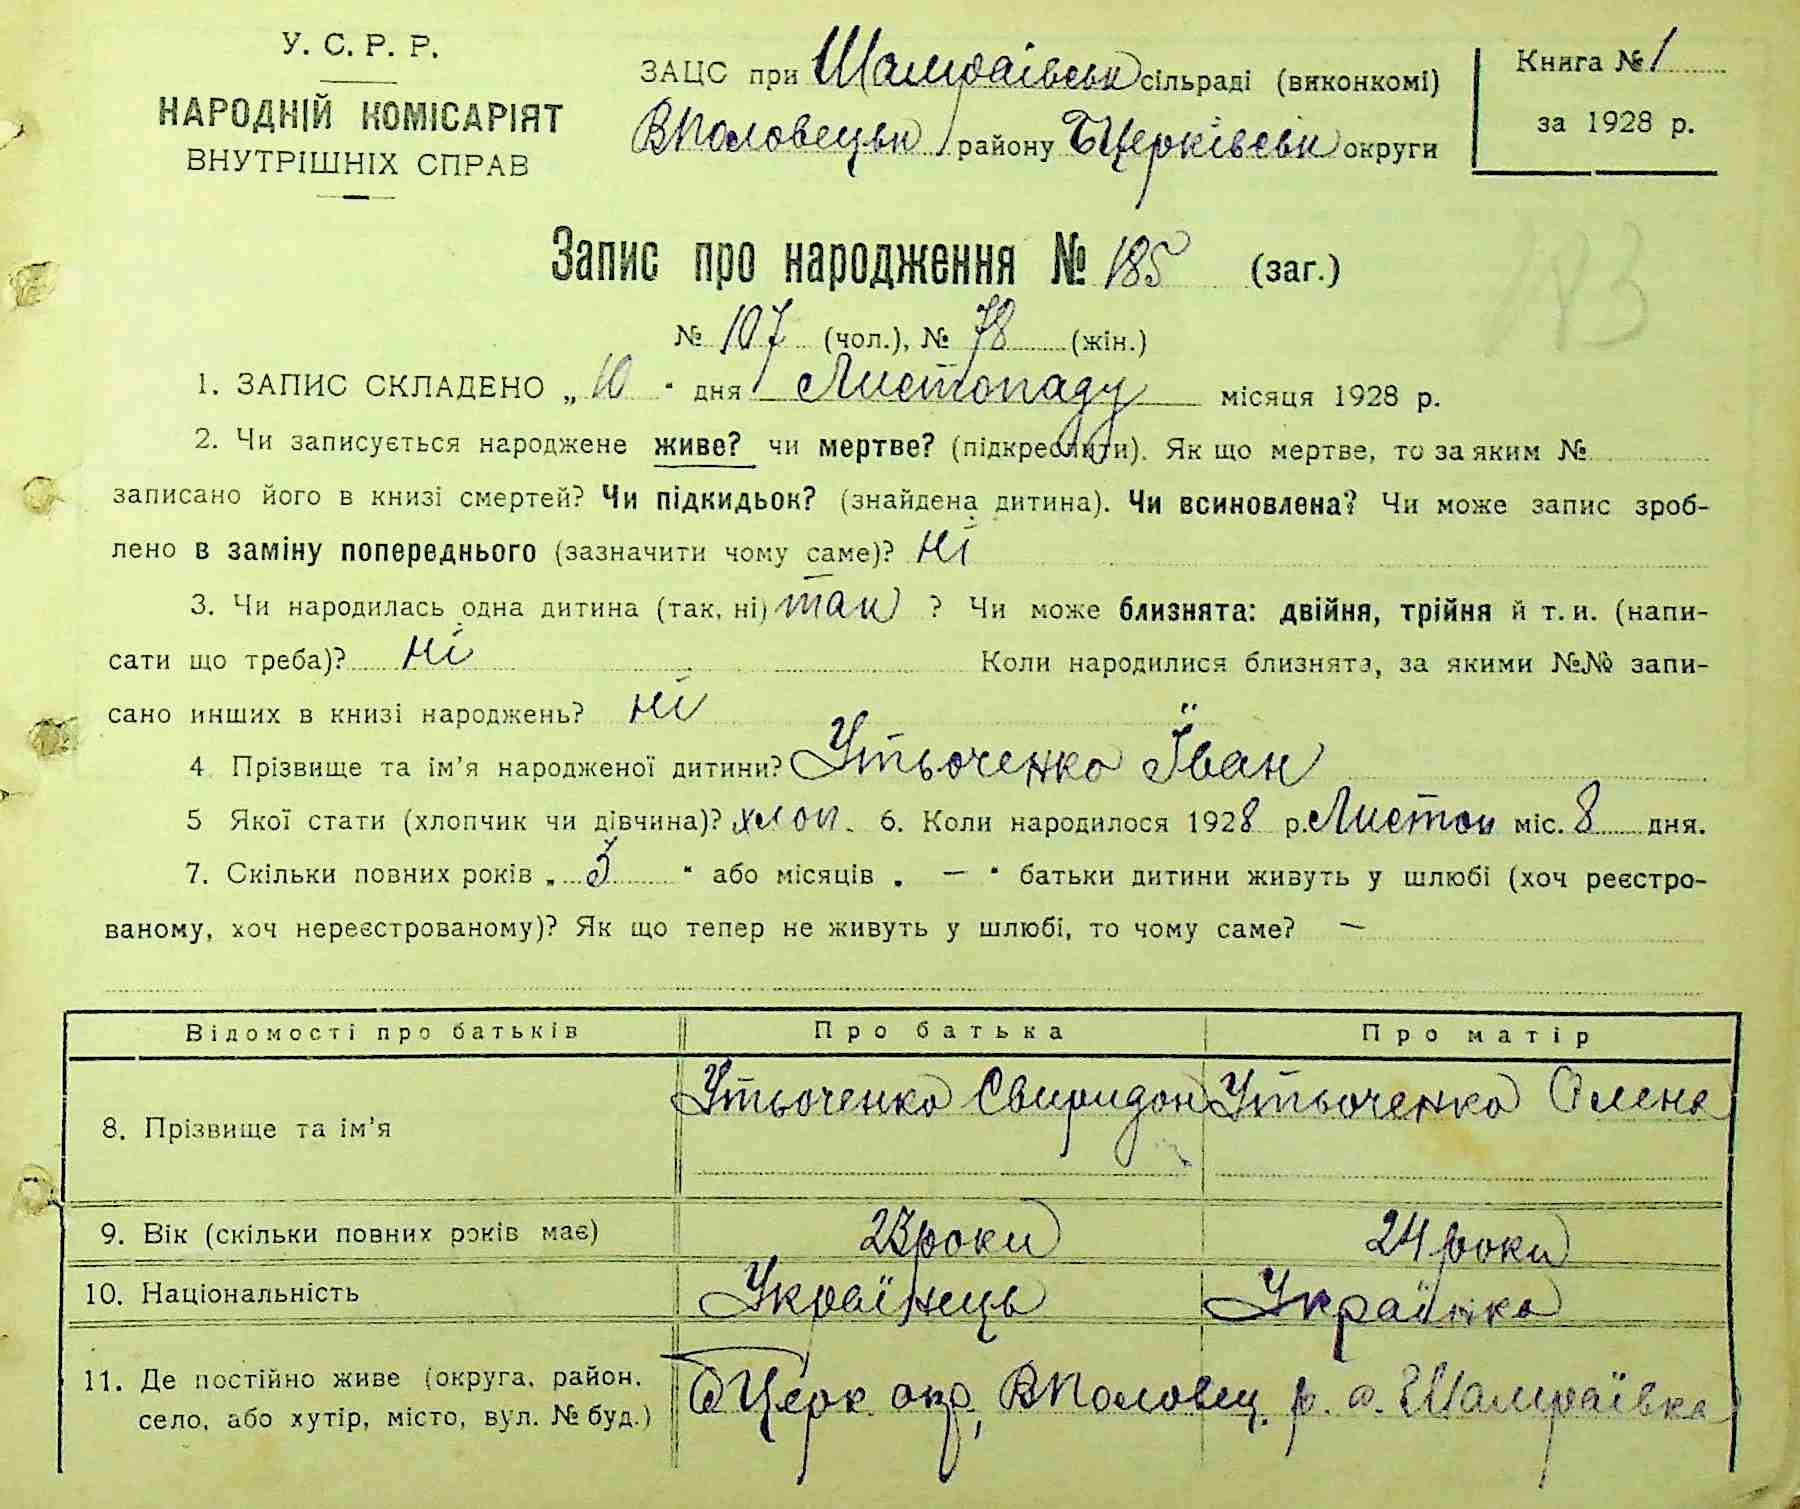 У. С. Р. Р.
НАРОДНІЙ КОМІСАРІЯТ
ВНУТРІШНІХ СПРАВ
ЗАЦС при Шамраївськ сільраді (виконкомі)
ВПоловецьк району БЦерківськ округи
Книга № 1
за 1928 р.
Запис про народження № 185 (заг.)
№ 107 (чол.), № 78 (жін.)
1. ЗАПИС СКЛАДЕНО „ 10 " дня Листопаду місяця 1928 р.
2. Чи записується народжене живе? чи мертве? (підкреслити). Як що мертве, то за яким №
записано його в книзі смертей? Чи підкидьок? (знайдена дитина). Чи всиновлена? Чи може запис зроб-
лено в заміну попереднього (зазначити чому саме)? ні
3. Чи народилась одна дитина (так, ні) так ? Чи може близнята: двійня, трійня й т. и. (напи-
сати що треба)? ні Коли народилися близнята, за якими №№ запи-
сано инших в книзі народжень? ні
4. Прізвище та ім'я народженої дитини? Утьоченко Іван
5 Якої стати (хлопчик чи дівчина)? хлоп. 6. Коли народилося 1928 р. Листоп міс. 8 дня.
7. Скільки повних років „ 3 " або місяців „ — " батьки дитини живуть у шлюбі (хоч реєстро-
ваному, хоч нереєстрованому)? Як що тепер не живуть у шлюбі, то чому саме? —
Відомості про батьків Про батька Про матір
8. Прізвище та ім'я Утьоченко Свиридон Утьоченко Олена
9. Вік (скільки повних років має) 23 роки 24 роки
10. Національність Українець Українка
11. Де постійно живе (округа, район,
село, або хутір, місто, вул. № буд.) БЦерк окр, ВПоловец. р. с. Шамраївка